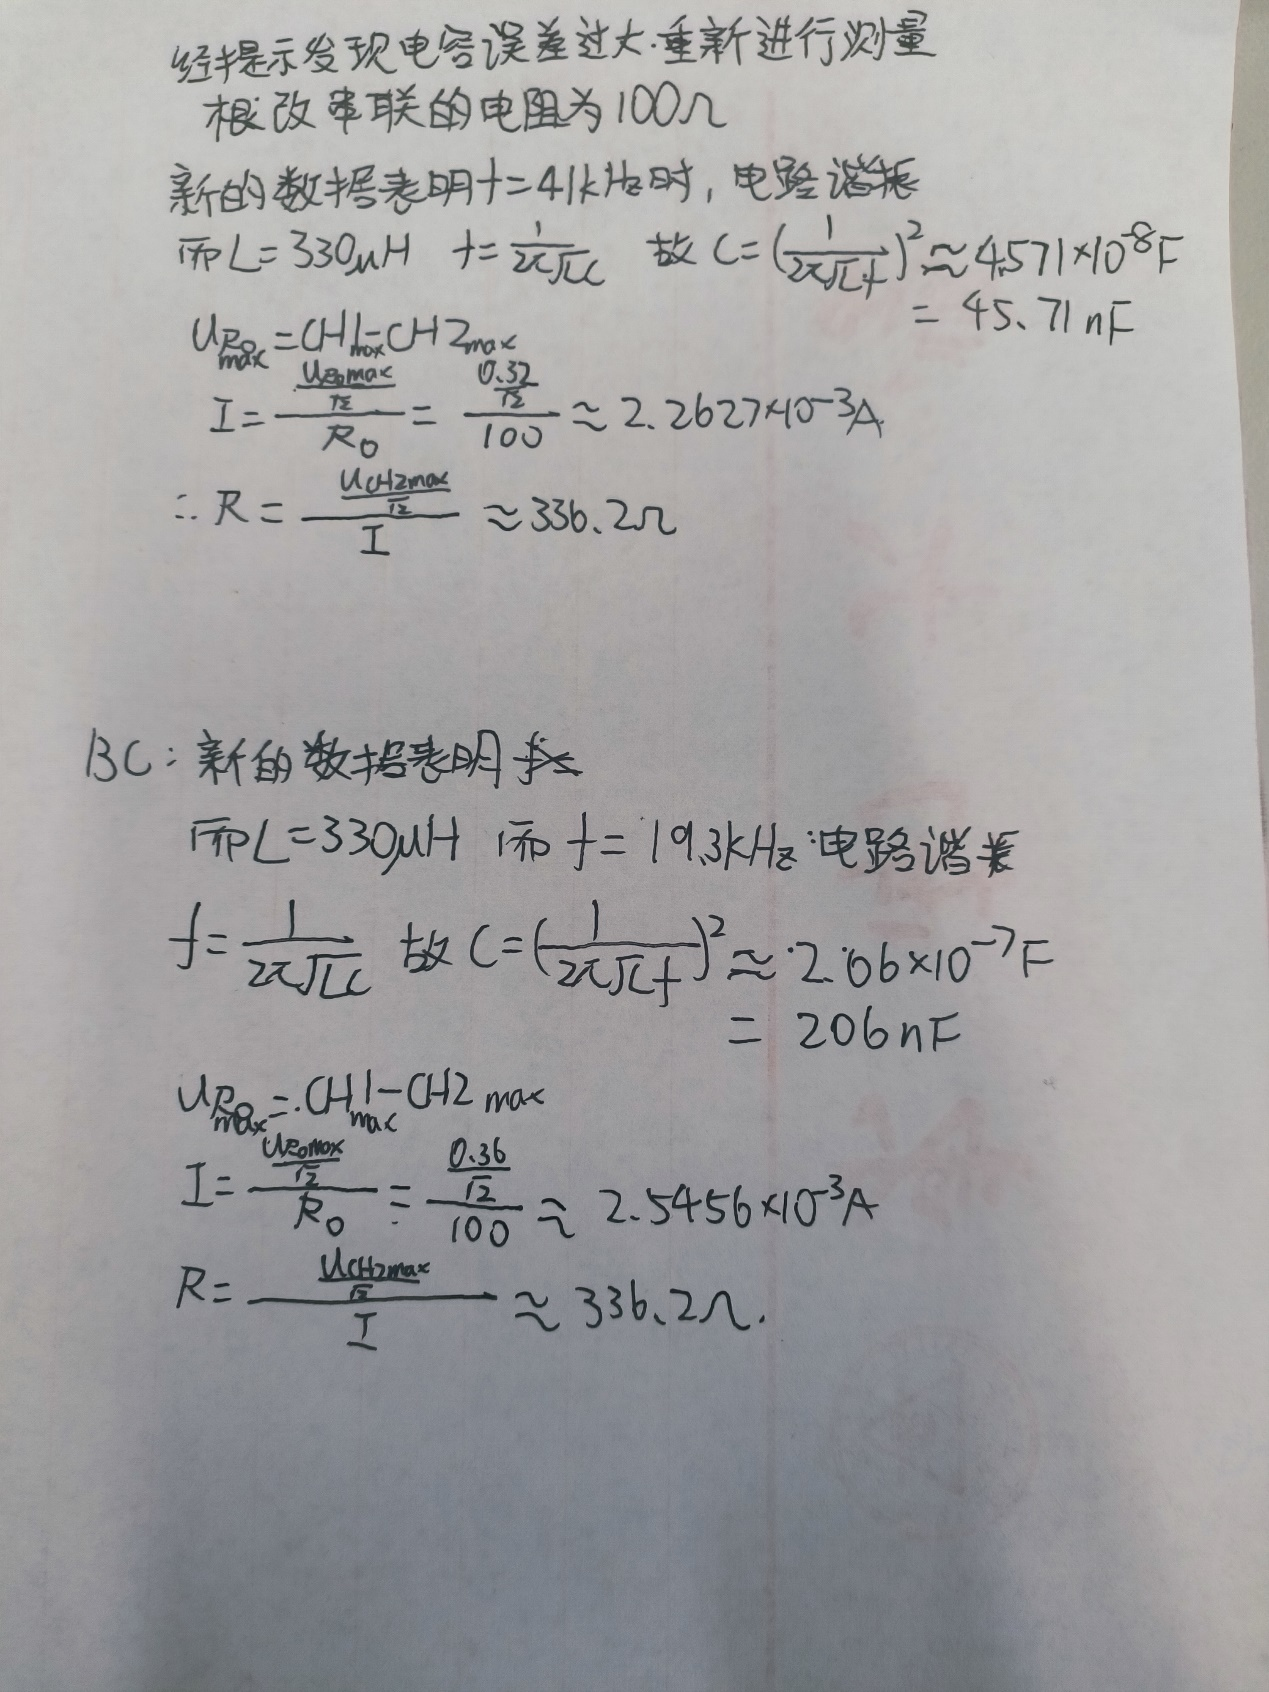 经提示发现电容误差过大.重新进行测量
根改串联的电阻为100Ω
新的数据表明f=41kHz时,电路谐振
而L=330μH f=1/(2π√LC) 故C=(1/(2π√L f))²≈4.571×10⁻⁸F
=45.71nF
UR₀max=CH1max-CH2max
I=(UR₀max/√2)/R₀=(0.32/√2)/100≈2.2627×10⁻³A
∴R=(UCH2max/√2)/I≈336.2Ω
BC:新的数据表明
而L=330μH 而f=19.3kHz电路谐振
f=1/(2π√LC) 故C=(1/(2π√L f))²≈2.06×10⁻⁷F
=206nF
UR₀max=CH1max-CH2max
I=(UR₀max/√2)/R₀=(0.36/√2)/100≈2.5456×10⁻³A
R=(UCH2max/√2)/I≈336.2Ω.